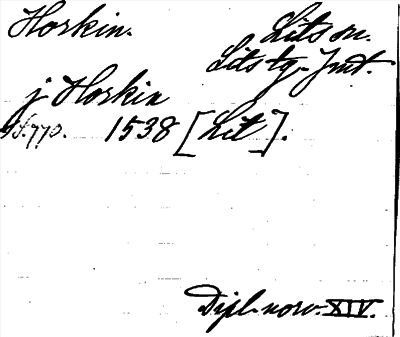 Horkin. Lits sn.
Lits tg. Jmt.
j Horkin
s. 770. 1538 [Lit].
Dipl. norv. XIV.